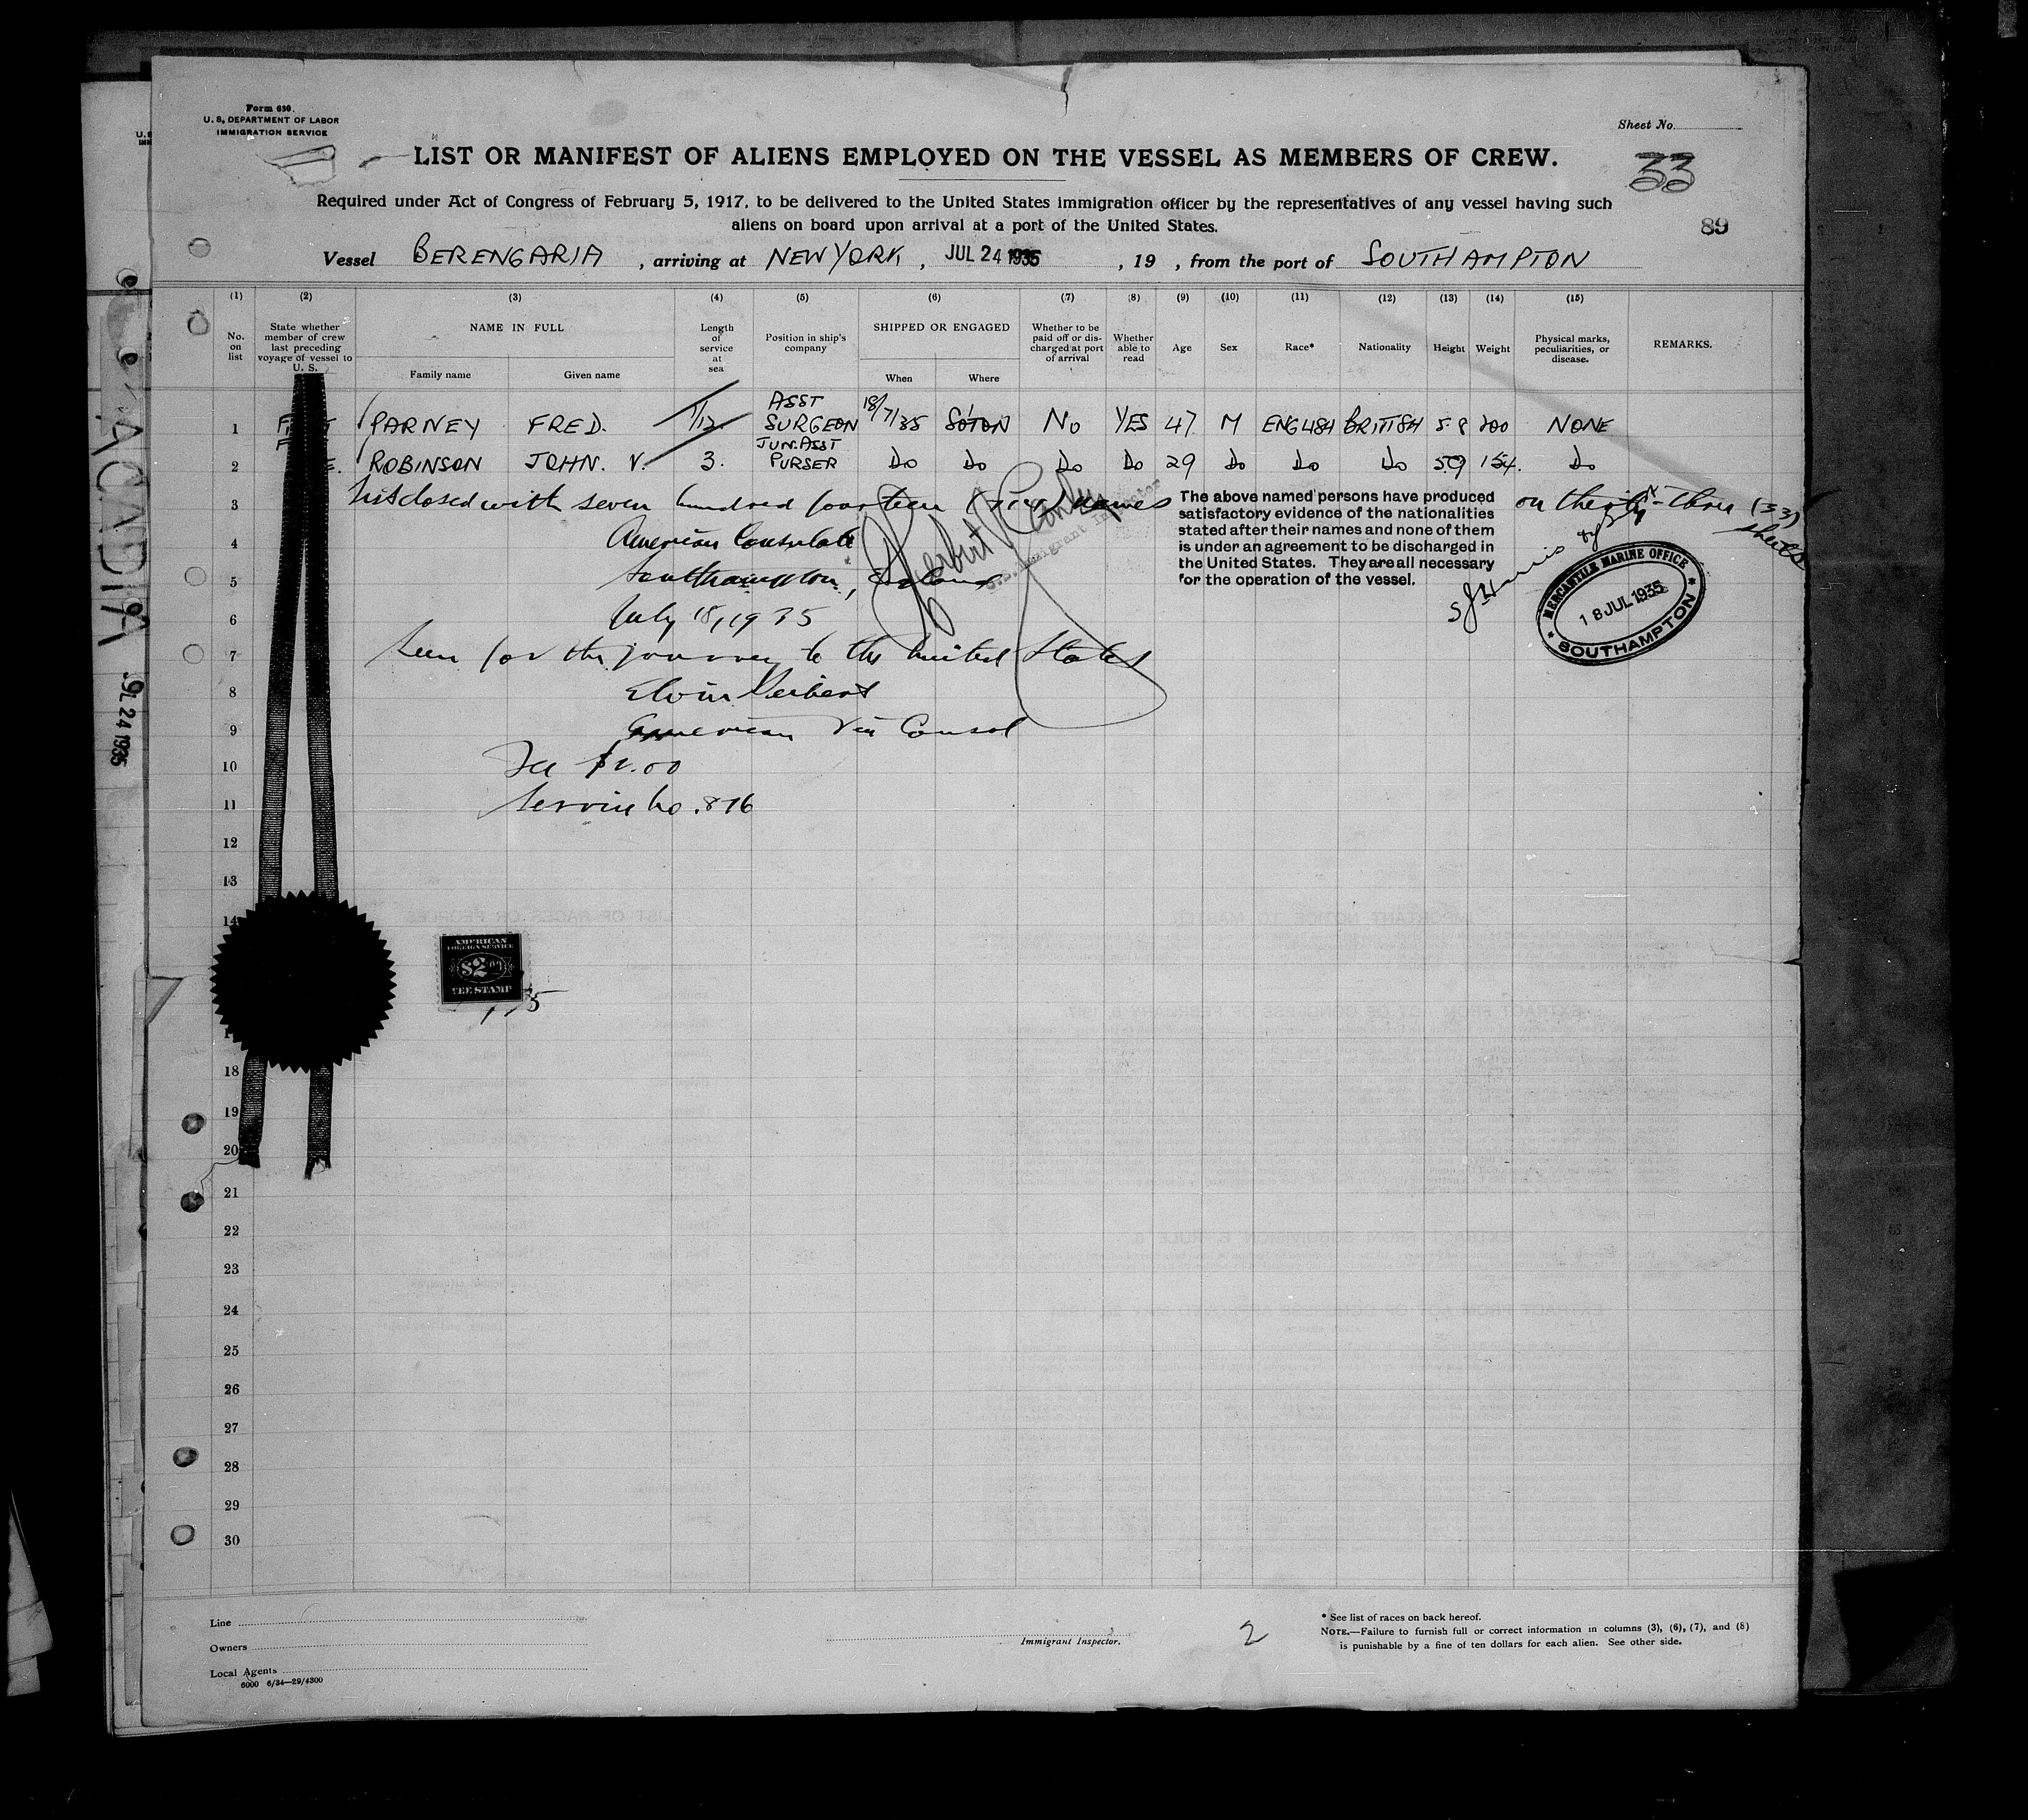 Form 680.
U. S. DEPARTMENT OF LABOR
IMMIGRATION SERVICE
Sheet No.
LIST OR MANIFEST OF ALIENS EMPLOYED ON THE VESSEL AS MEMBERS OF CREW.
33
Required under Act of Congress of February 5, 1917, to be delivered to the United States immigration officer by the representatives of any vessel having such
aliens on board upon arrival at a port of the United States.
89
Vessel BERENGARIA , arriving at NEW YORK , JUL 24 1935 , 19 , from the port of SOUTHAMPTON
(1) (2) (3) (4) (5) (6) (7) (8) (9) (10) (11) (12) (13) (14) (15)
No. on list
State whether member of crew last preceding voyage of vessel to U. S.
NAME IN FULL
Family name Given name
Length of service at sea
Position in ship's company
SHIPPED OR ENGAGED
When Where
Whether to be paid off or discharged at port of arrival
Whether able to read
Age Sex Race* Nationality Height Weight
Physical marks, peculiarities, or disease.
REMARKS.
1 PARNEY FRED. 1/12. ASST SURGEON 18/7/35 SO'TON NO YES 47 M ENGLISH BRITISH 5.8 200 NONE
2 ROBINSON JOHN. V. 3. JUN. ASST PURSER Do Do Do Do 29 Do Do Do 5.9 154. Do
3 List closed with seven hundred fourteen (714) names on thirty-three (33) sheets
The above named persons have produced
satisfactory evidence of the nationalities
stated after their names and none of them
is under an agreement to be discharged in
the United States. They are all necessary
for the operation of the vessel.
4 American Consulate
5 Southampton, England
6 July 18, 1935
Immigrant Inspector
MERCANTILE MARINE OFFICE
18 JUL 1935
SOUTHAMPTON
7 Seen for the journey to the United States
8 Elvin Seibert
9 American Vice Consul
10 Fee $2.00
11 Service No. 876
12
13
14
AMERICAN
FOREIGN SERVICE
$2.00
FEE STAMP
18
19
20
21
22
23
24
25
26
27
28
29
30
Line
Owners
Local Agents
6000 6/34—29/4300
Immigrant Inspector.
2
* See list of races on back hereof.
NOTE.—Failure to furnish full or correct information in columns (3), (6), (7), and (8)
is punishable by a fine of ten dollars for each alien. See other side.
ACADIA
JL 24 1935